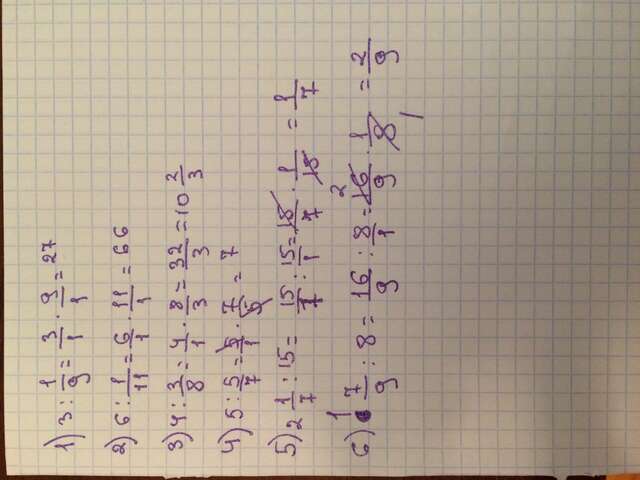 1) 3 : 1/9 = 3/1 · 9/1 = 27
2) 6 : 1/11 = 6/1 · 11/1 = 66
3) 4 : 3/8 = 4/1 · 8/3 = 32/3 = 10 2/3
4) 5 : 5/7 = 5/1 · 7/5 = 7
5) 2 1/7 : 15 = 15/7 : 15/1 = 15/7 · 1/15 = 1/7
6) 1 7/9 : 8 = 16/9 : 8/1 = 16/9 2 · 1/8 1 = 2/9